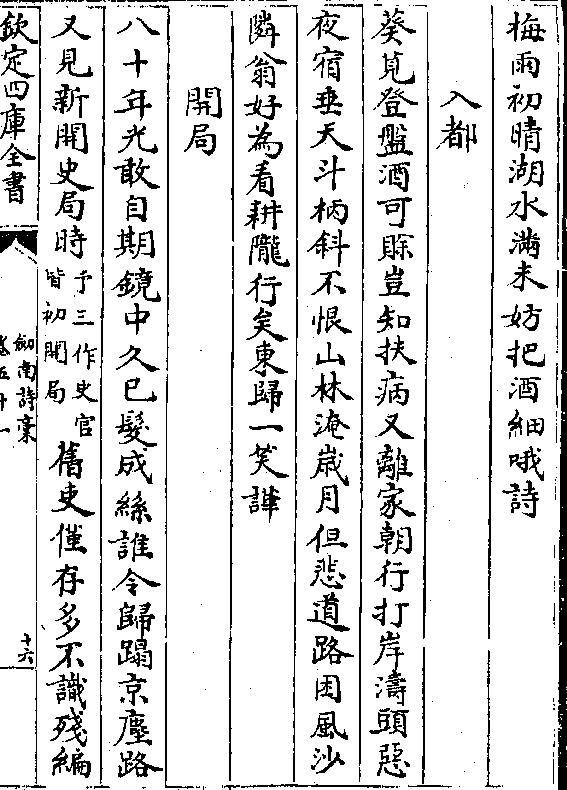 梅雨初晴湖水滿未妨把酒細哦詩
入都
葵莧登盤酒可賖豈知扶病又離家朝行打岸濤頭惡
夜宿垂天斗柄斜不恨山林淹嵗月但悲道路困風沙
隣翁好為看耕隴行矣東歸一笑譁
開局
八十年光敢自期鏡中久已髮成絲誰令歸蹋京塵路
又見新開史局時予三作史官皆初開局舊吏僅存多不識殘編
欽定四庫全書
劒南詩槀
卷五十一
十六